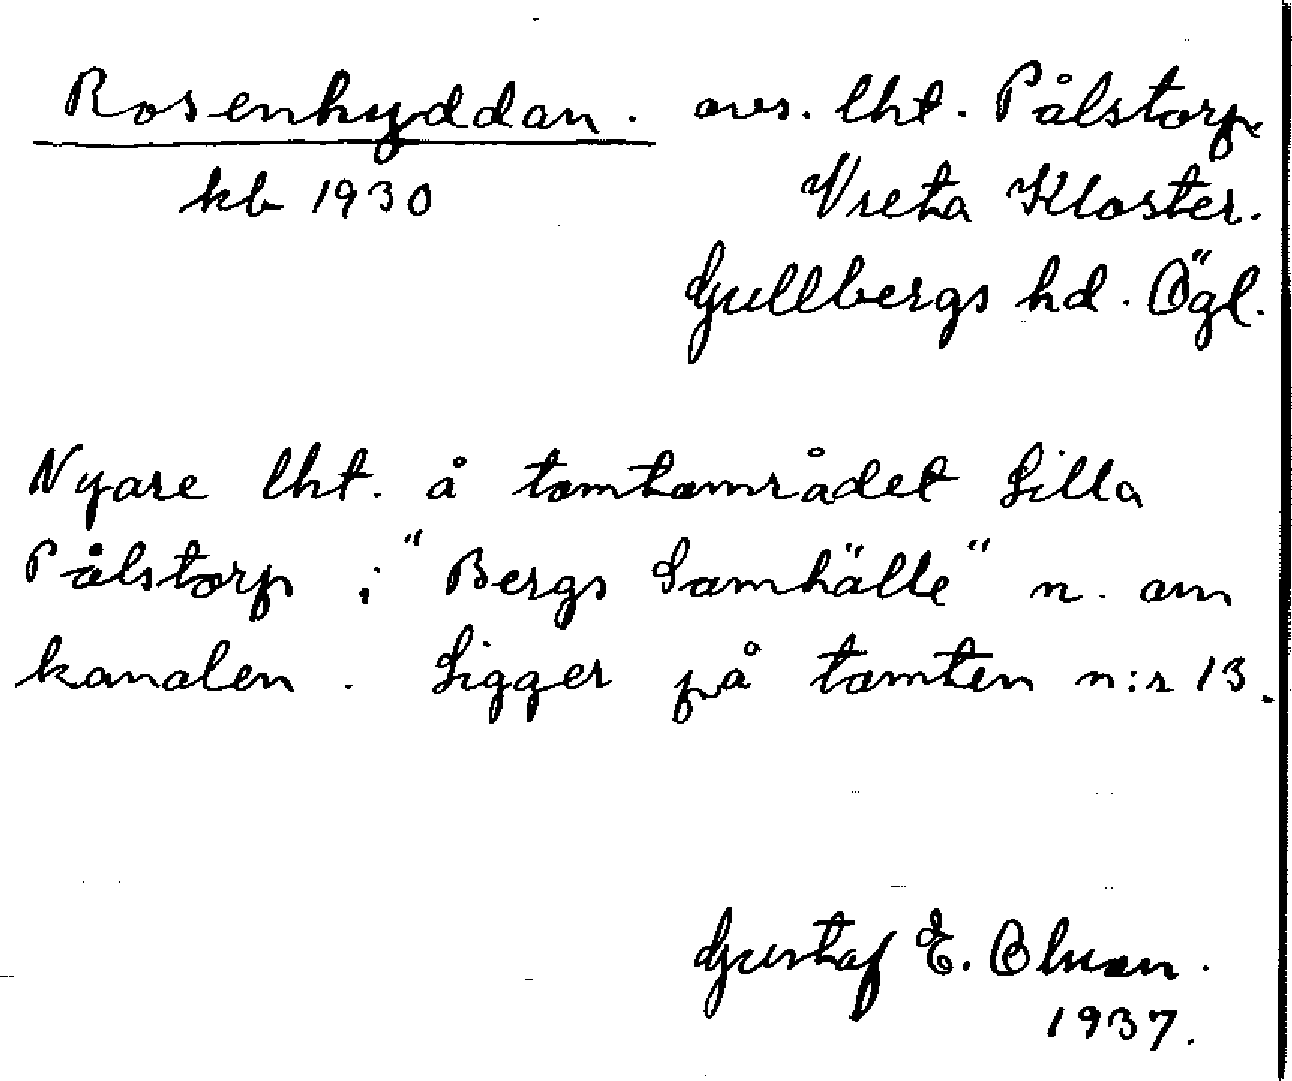 Rosenhyddan. avs. lht. Pålstorp
kb 1930 Vreta Kloster.
Gullbergs hd. Ögl.
Nyare lht. å tomtområdet Lilla
Pålstorp i "Bergs Samhälle" n. om
kanalen. Ligger på tomten n:r 13.
Gustaf E. Olsson.
1937.